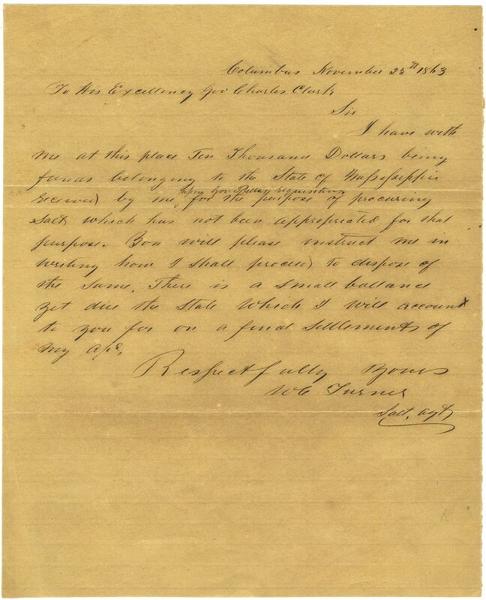 Columbus November 25th 1863
To His Excellency Gov Charles Clark
Sir
I have with
me at this place Ten Thousand Dollars being
funds belonging to the State of Mississippi
received by me, for the purpose of procuring
upon Gov Pettus requisition
Salt which has not been appropriated for that
purpose. You will please instruct me in
writing how I shall proceed to dispose of
the same. There is a small ballance
yet due the State which I will account
to you for on a final settlements of
my a/c.
Respectfully Yours
Turner
Salt, agt